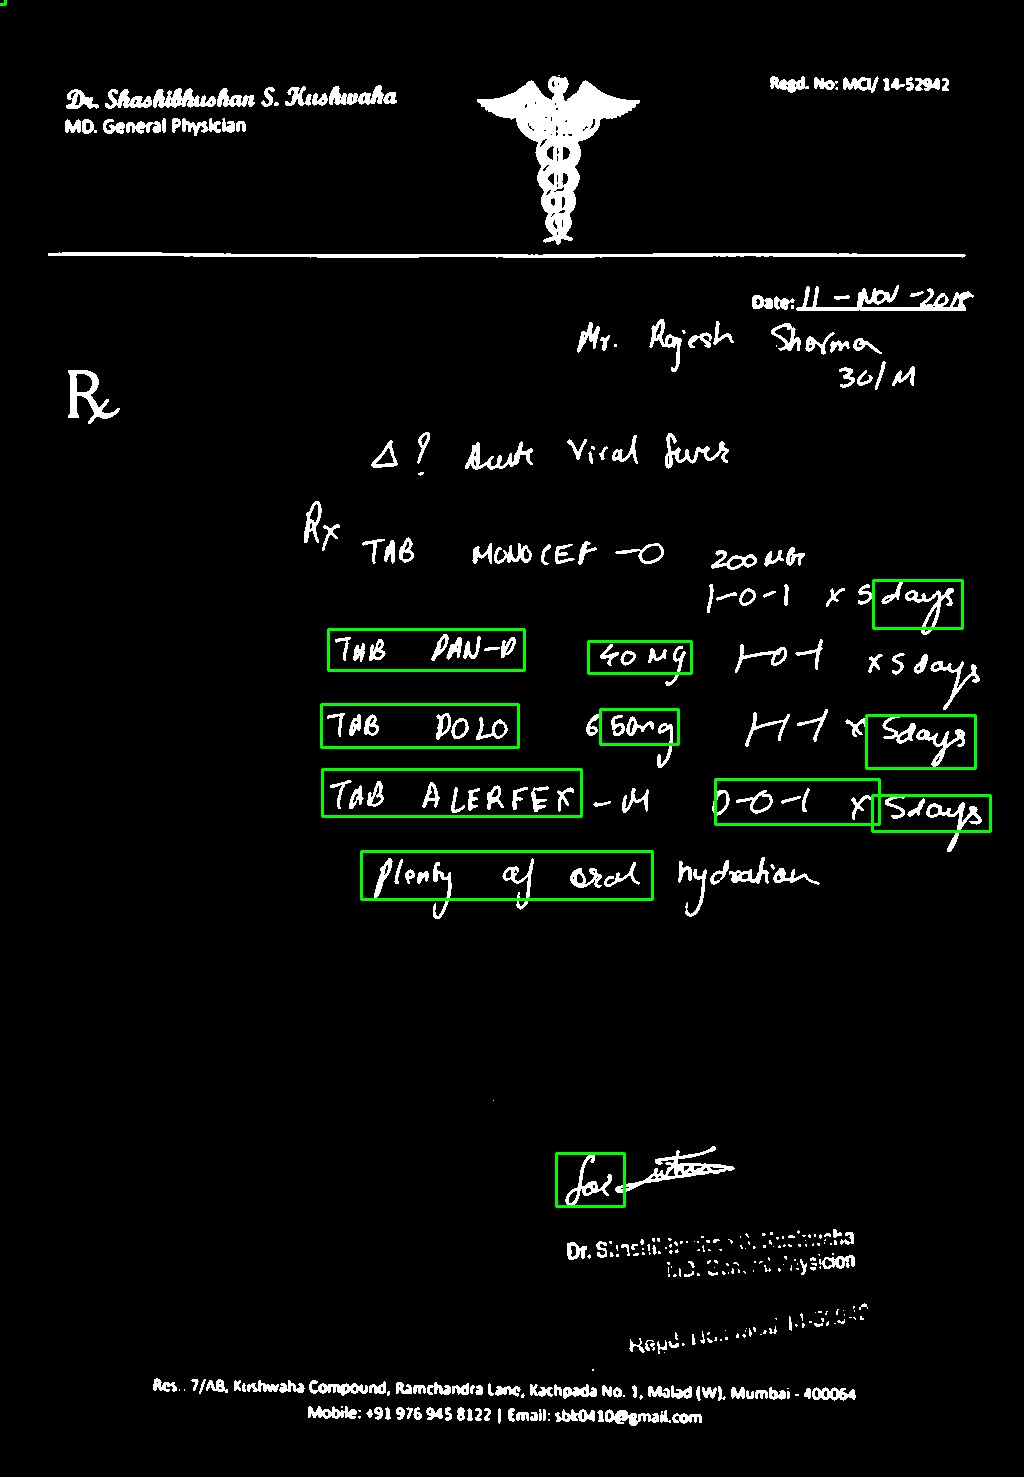 Dr. Shashibhushan S. Kushwaha
Regd. No: MCI/ 14-52942
MD. General Physician
Date: 11 - NOV - 2018
Mr. Rajesh Sharma
30/M
Rx
Δ? Acute Viral fever
Rx
TAB MONOCEF -O 200 MG
1-0-1 x 5 days
TAB PAN-D 40 MG 1-0-1 x 5 days
TAB DOLO 650mg 1-1-1 x 5days
TAB ALERFEX -M 0-0-1 x 5days
Plenty of oral hydration
Dr. Shashibhushan S. Kushwaha
MD. General Physicion
Regd. No.: MCI/ 14-52942
Res.: 7/AB, Kushwaha Compound, Ramchandra Lane, Kachpada No. 1, Malad (W), Mumbai - 400064
Mobile: +91 976 945 8122 | Email: sbk0410@gmail.com